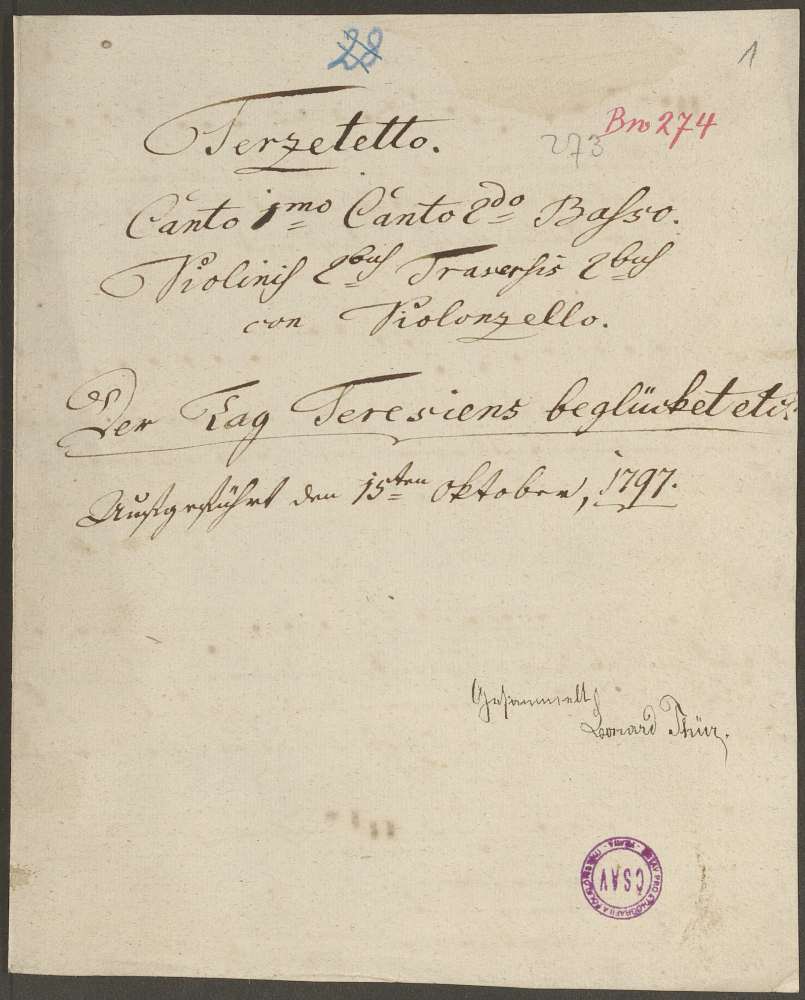 28
1
Terzetetto.
273 Bn 274
Canto 1mo Canto 2do Basso.
Violinis 2bus Traversis 2bus
con Violonzello.
Der Tag Teresiens beglücket etc.
Aufgeführt den 15ten Oktober, 1797.
Gesammelt
Leonard Thür.
ČSAV